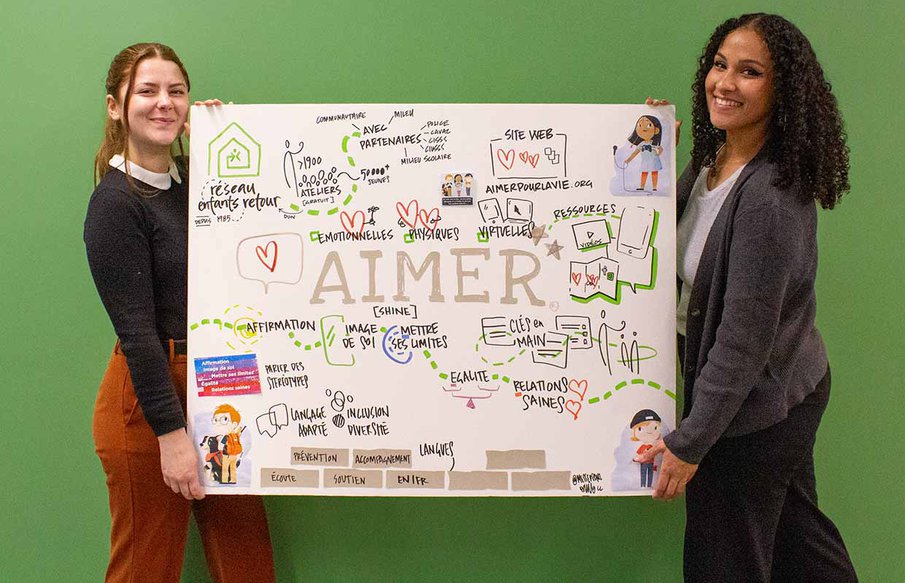 réseau
enfants retour
DEPUIS 1985
>1900
ATELIERS
[GRATUIT]
DON
5000+
JEUNES
COMMUNAUTAIRE
MILIEU
AVEC
PARTENAIRES
POLICE
CAVAC
CISSS
CIUSSS
MILIEU SCOLAIRE
SITE WEB
AIMERPOURLAVIE.ORG
ÉMOTIONNELLES
PHYSIQUES
VIRTUELLES
RESSOURCES
VIDÉOS
AIMER
[SHINE]
AFFIRMATION
IMAGE
DE SOI
METTRE
SES LIMITES
CLÉS EN
MAIN
ÉGALITÉ
RELATIONS
SAINES
Affirmation
Image de soi
Mettre ses limites
Égalité
Relations saines
PARLER DES
STÉRÉOTYPES
LANGAGE
ADAPTÉ
INCLUSION
DIVERSITÉ
LANGUES
PRÉVENTION
ACCOMPAGNEMENT
ÉCOUTE
SOUTIEN
EN/FR